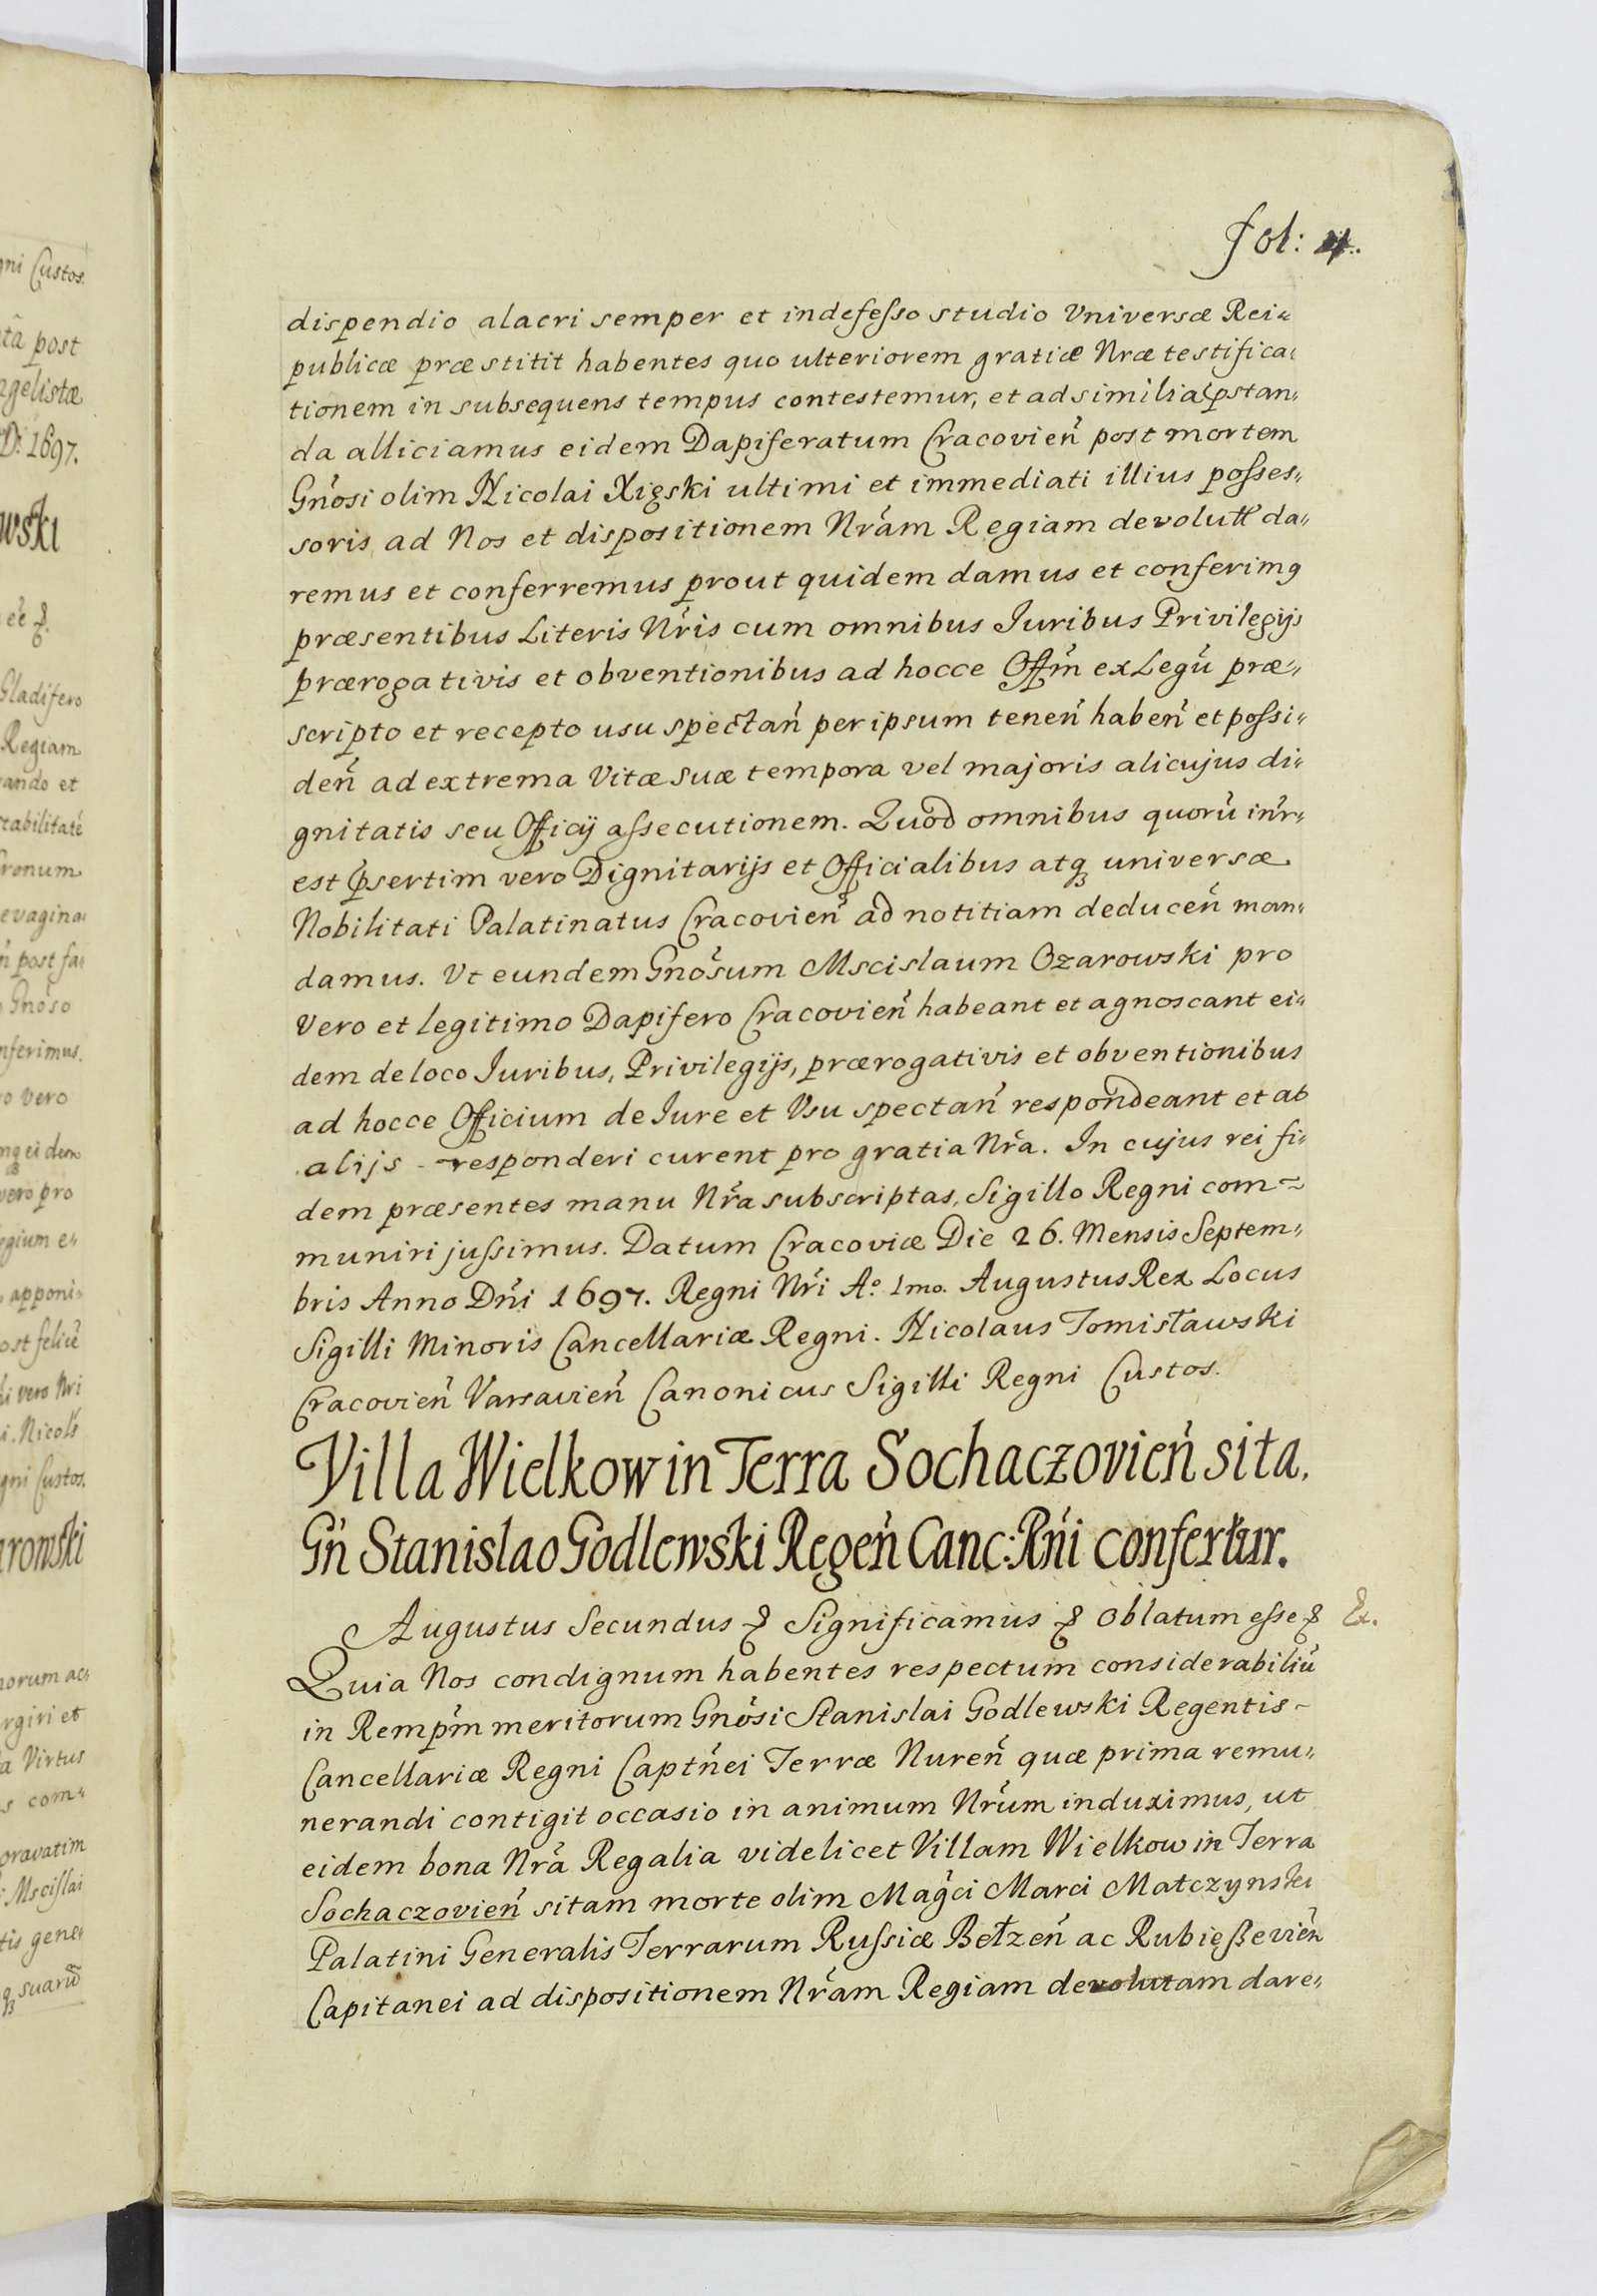 gni Custos.
tâ post
ngelistæ
D: 1697.
wski
eê &.
Gladifero
Regiam
ando et
tabilitatē
ronum
evagina„
n̄ post fa„
Gnoso
nferimus.
o vero
eidem
vero pro
egium e„
apponi„
ost felicē
li vero Nri
i. Nicol9
gni Custos.
arowski
norum ac„
rgiri et
a Virtus
s com„
oravatim
Mscislai
tis gene„
suarū
fol: 4.
dispendio alacri semper et indefesso studio Universæ Rei„
publicæ præstitit habentes quo ulteriorem gratiæ Nræ testifica„
tionem in subsequens tempus contestemur, et ad similia p̄stan„
da alliciamus eidem Dapiferatum Cracovien̄ post mortem
Gn̄osi olim Nicolai Xigski ultimi et immediati illius posses„
soris ad Nos et dispositionem Nrām Regiam devolutū da„
remus et conferremus prout quidem damus et conferim9
præsentibus Literis Nrīs cum omnibus Juribus Privilegijs
prærogativis et obventionibus ad hocce Offm̄ ex Legū præ„
scripto et recepto usu spectan̄ per ipsum tenen̄ haben̄ et possi„
den̄ ad extrema Vitæ suæ tempora vel majoris alicujus di„
gnitatis seu Officij assecutionem. Quod omnibus quorū inr̄„
est p̄sertim vero Dignitarijs et Officialibus atq3 universæ
Nobilitati Palatinatus Cracovien̄ ad notitiam deducen̄ man„
damus. Ut eundem Gnōsum Mscislaum Ozarowski pro
Vero et legitimo Dapifero Cracovien̄ habeant et agnoscant ei„
dem de loco Juribus, Privilegijs, prærogativis et obventionibus
ad hocce Officium de Iure et Usu spectan̄ respondeant et ab
alijs - responderi curent pro gratia Nrā. In cujus rei fi„
dem præsentes manu Nrā subscriptas, Sigillo Regni com„
muniri jussimus. Datum Cracoviæ Die 26. Mensis Septem„
bris Anno Dn̄i 1697. Regni Nrī A:o 1mo. Augustus Rex Locus
Sigilli Minoris Cancellariæ Regni. Nicolaus Tomisławski
Cracovien̄ Varsavien̄ Canonicus Sigilli Regni Custos.
Villa Wielkow in Terra Sochaczovien̄ sita.
Gn̄ Stanislao Godlewski Regen̄ Canc: Rn̄i confertur.
Augustus Secundus & Significamus & Oblatum esse & Ex.
Quia Nos condignum habentes respectum considerabiliū
in Remp̄m meritorum Gnōsi Stanislai Godlewski Regentis -
Cancellariæ Regni Captn̄ei Terræ Nuren̄ quæ prima remu„
nerandi contigit occasio in animum Nrūm induximus, ut
eidem bona Nrā Regalia videlicet Villam Wielkow in Terra
Sochaczovien̄ sitam morte olim Mag̃ci Marci Matczynski
Palatini Generalis Terrarum Russiæ Bełzen̄ ac Rubięßevien̄
Capitanei ad dispositionem Nrām Regiam devolutam dare„